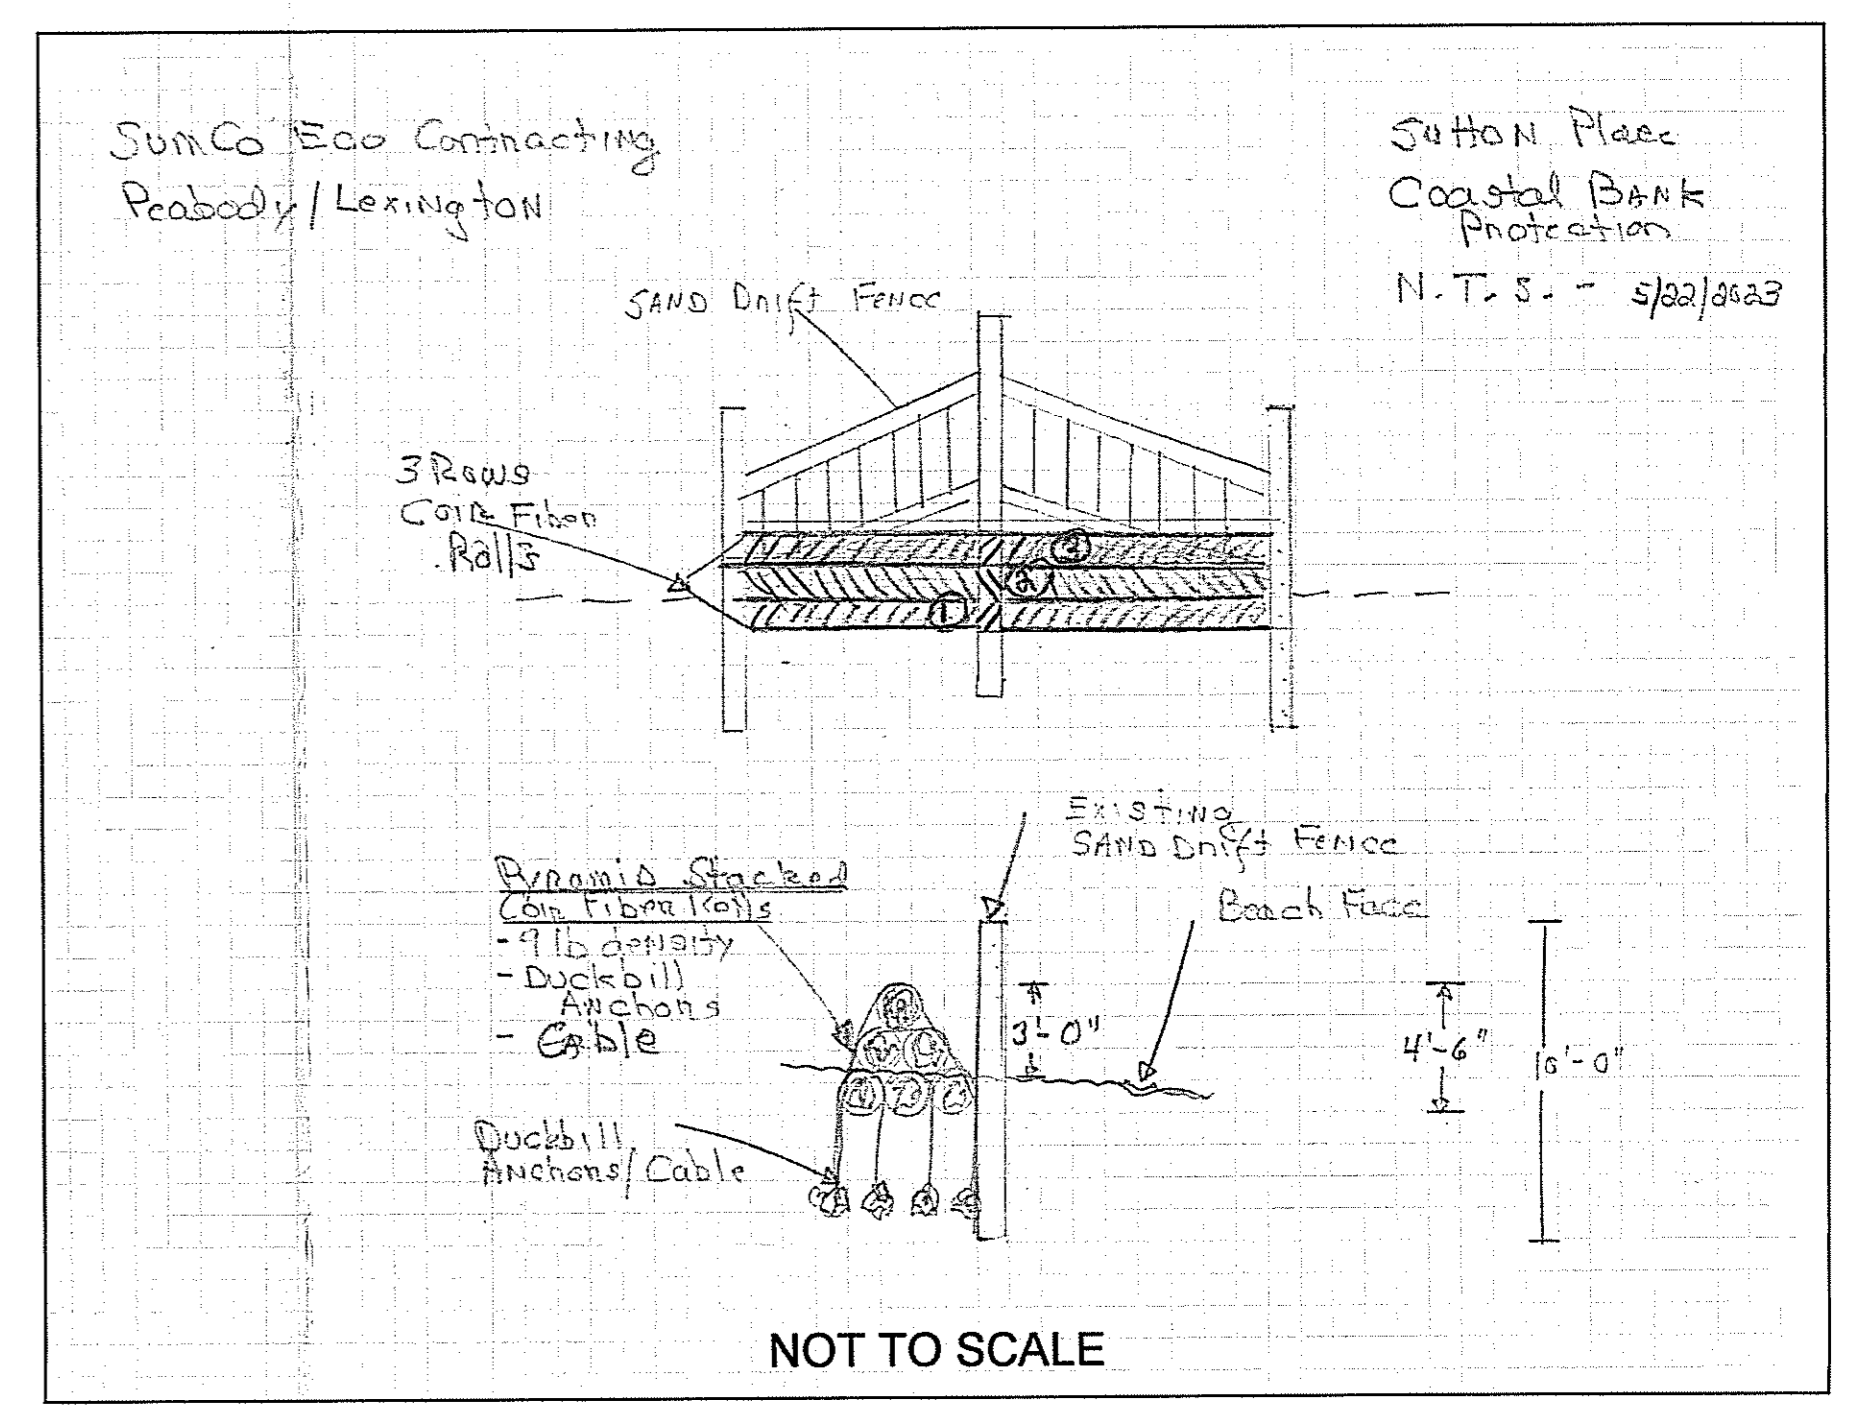 SumCo Eco Contracting
Peabody/Lexington
Sutton Place
Coastal Bank
Protection
N.T.S. - 5/22/2023
Sand Drift Fence
3 Rows
Coir Fiber
Rolls
3
2
1
Existing
Sand Drift Fence
Pyramid Stacked
Coir Fiber Rolls
- 9 lb density
- Duckbill
Anchors
- Cable
Beach Face
3'-0"
4'-6"
10'-0"
Duckbill
Anchors/Cable
NOT TO SCALE